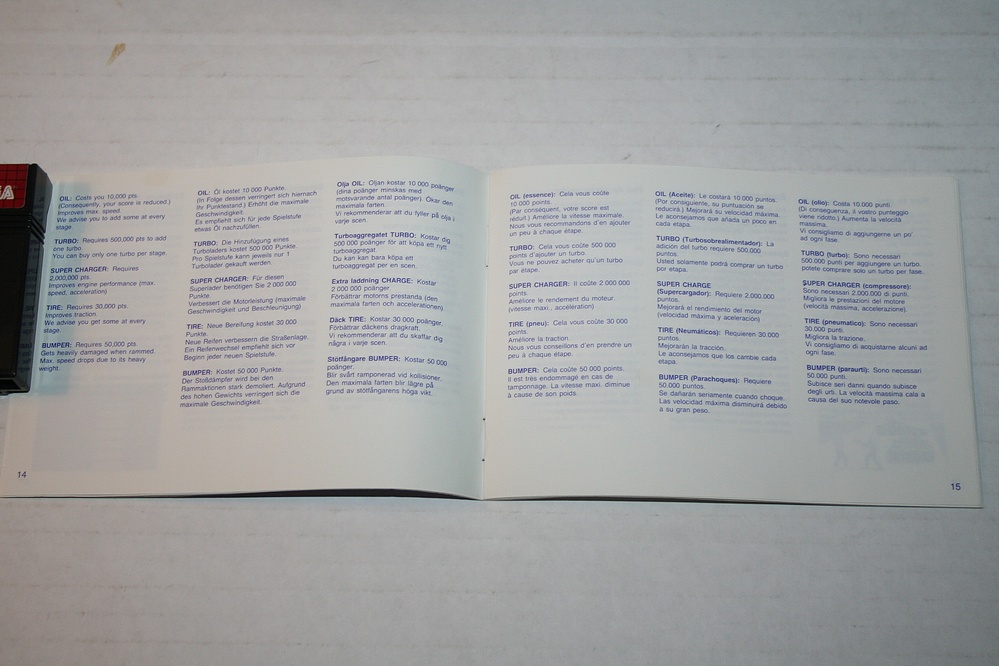 OIL: Costs you 10,000 pts.
(Consequently, your score is reduced.)
Improves max. speed.
We advise you to add some at every
stage.
TURBO: Requires 500,000 pts to add
one turbo.
You can buy only one turbo per stage.
SUPER CHARGER: Requires
2,000,000 pts.
Improves engine performance (max.
speed, acceleration)
TIRE: Requires 30,000 pts.
Improves traction.
We advise you get some at every
stage
BUMPER: Requires 50,000 pts.
Gets heavily damaged when rammed.
Max. speed drops due to its heavy
weight.
14
OIL: Öl kostet 10 000 Punkte.
(In Folge dessen verringert sich hiernach
Ihr Punktestand.) Erhöht die maximale
Geschwindigkeit.
Es empfiehlt sich für jede Spielstufe
etwas Öl nachzufüllen.
TURBO: Die Hinzufügung eines
Turboladers kostet 500 000 Punkte.
Pro Spielstufe kann jeweils nur 1
Turbolader gekauft werden.
SUPER CHARGER: Für diesen
Superlader benötigen Sie 2 000 000
Punkte.
Verbessert die Motorleistung (maximale
Geschwindigkeit und Beschleunigung)
TIRE: Neue Bereifung kostet 30 000
Punkte.
Neue Reifen verbessern die Straßenlage.
Ein Reifenwechsel empfiehlt sich vor
Beginn jeder neuen Spielstufe.
BUMPER: Kostet 50 000 Punkte.
Der Stoßdämpfer wird bei den
Rammaktionen stark demoliert. Aufgrund
des hohen Gewichts verringert sich die
maximale Geschwindigkeit.
Olja OIL: Oljan kostar 10 000 poänger
(dina poänger minskas med
motsvarande antal poänger). Ökar den
maximala farten.
Vi rekommenderar att du fyller på olja i
varje scen.
Turboaggregatet TURBO: Kostar dig
500 000 poänger för att köpa ett nytt
turboaggregat.
Du kan bara köpa ett
turboaggregat per en scen.
Extra laddning CHARGE: Kostar
2 000 000 poänger
Förbättrar motorns prestanda (den
maximala farten och accelerationen).
Däck TIRE: Kostar 30 000 poänger.
Förbättrar däckens dragkraft.
Vi rekommenderar att du skaffar dig
några i varje scen.
Stötfångare BUMPER: Kostar 50 000
poänger.
Blir svårt ramponerad vid kollisioner.
Den maximala farten blir lägre på
grund av stötfångarens höga vikt.
OIL (essence): Cela vous coûte
10 000 points.
(Par conséquent, votre score est
réduit.) Améliore la vitesse maximale.
Nous vous recommandons d'en ajouter
un peu à chaque étape.
TURBO: Cela vous coûte 500 000
points d'ajouter un turbo.
Vous ne pouvez acheter qu'un turbo
par étape.
SUPER CHARGER: Il coûte 2 000 000
points.
Améliore le rendement du moteur.
(vitesse maxi., accélération)
TIRE (pneu): Cela vous coûte 30 000
points.
Améliore la traction.
Nous vous conseillons d'en prendre un
peu à chaque étape.
BUMPER: Cela coûte 50 000 points.
Il est très endommagé en cas de
tamponnage. La vitesse maxi. diminue
à cause de son poids.
OIL (Aceite): Le costará 10.000 puntos.
(Por consiguiente, su puntuación se
reducirá.) Mejorará su velocidad máxima.
Le aconsejamos que añada un poco en
cada etapa.
TURBO (Turbosobrealimentador): La
adición del turbo requiere 500.000
puntos.
Usted solamente podrá comprar un turbo
por etapa.
SUPER CHARGE
(Supercargador): Requiere 2.000.000
puntos.
Mejorará el rendimiento del motor
(velocidad máxima y aceleración)
TIRE (Neumáticos): Requieren 30.000
puntos.
Mejorarán la tracción.
Le aconsejamos que los cambie cada
etapa.
BUMPER (Parachoques): Requiere
50.000 puntos.
Se dañarán seriamente cuando choque.
Las velocidad máxima disminuirá debido
a su gran peso.
OIL (olio): Costa 10.000 punti.
(Di conseguenza, il vostro punteggio
viene ridotto.) Aumenta la velocità
massima.
Vi consigliamo di aggiungerne un po'
ad ogni fase.
TURBO (turbo): Sono necessari
500.000 punti per aggiungere un turbo.
potete comprare solo un turbo per fase.
SUPER CHARGER (compressore):
Sono necessari 2.000.000 di punti.
Migliora le prestazioni del motore
(velocità massima, accelerazione).
TIRE (pneumatico): Sono necessari
30.000 punti.
Migliora la trazione.
Vi consigliamo di acquistarne alcuni ad
ogni fase.
BUMPER (paraurti): Sono necessari
50.000 punti.
Subisce seri danni quando subisce
degli urti. La velocità massima cala a
causa del suo notevole paso.
15